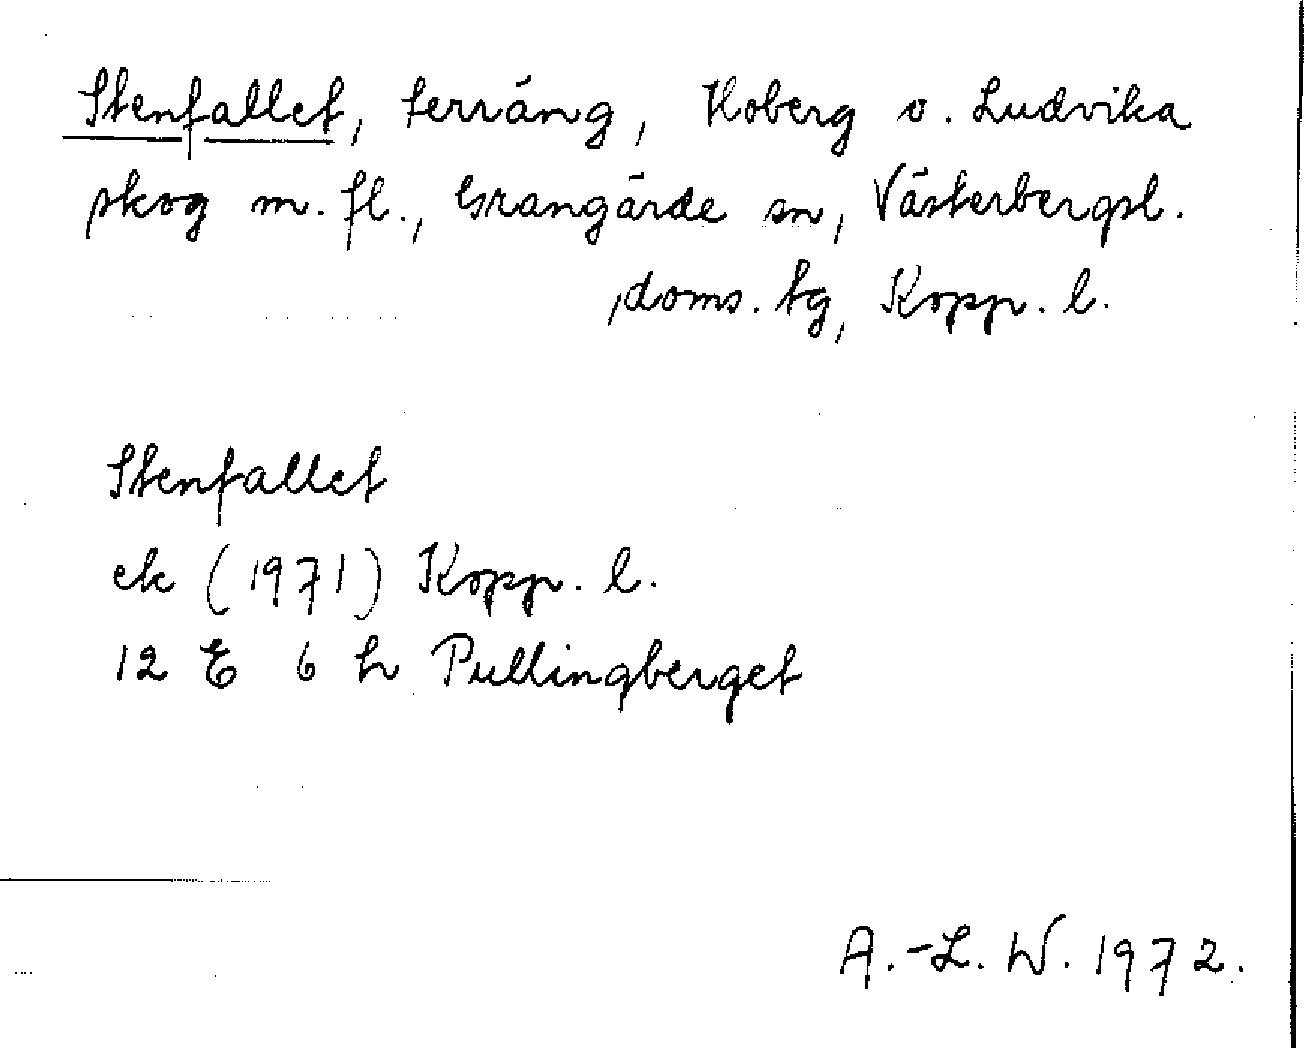 Stenfallet, terräng, Koberg o. Ludvika
skog m. fl., Grangärde sn, Västerbergsl.
doms. tg, Kopp. l.
Stenfallet
ek (1971) Kopp. l.
12 E 6 h Pullingberget
A.-L. W. 1972.